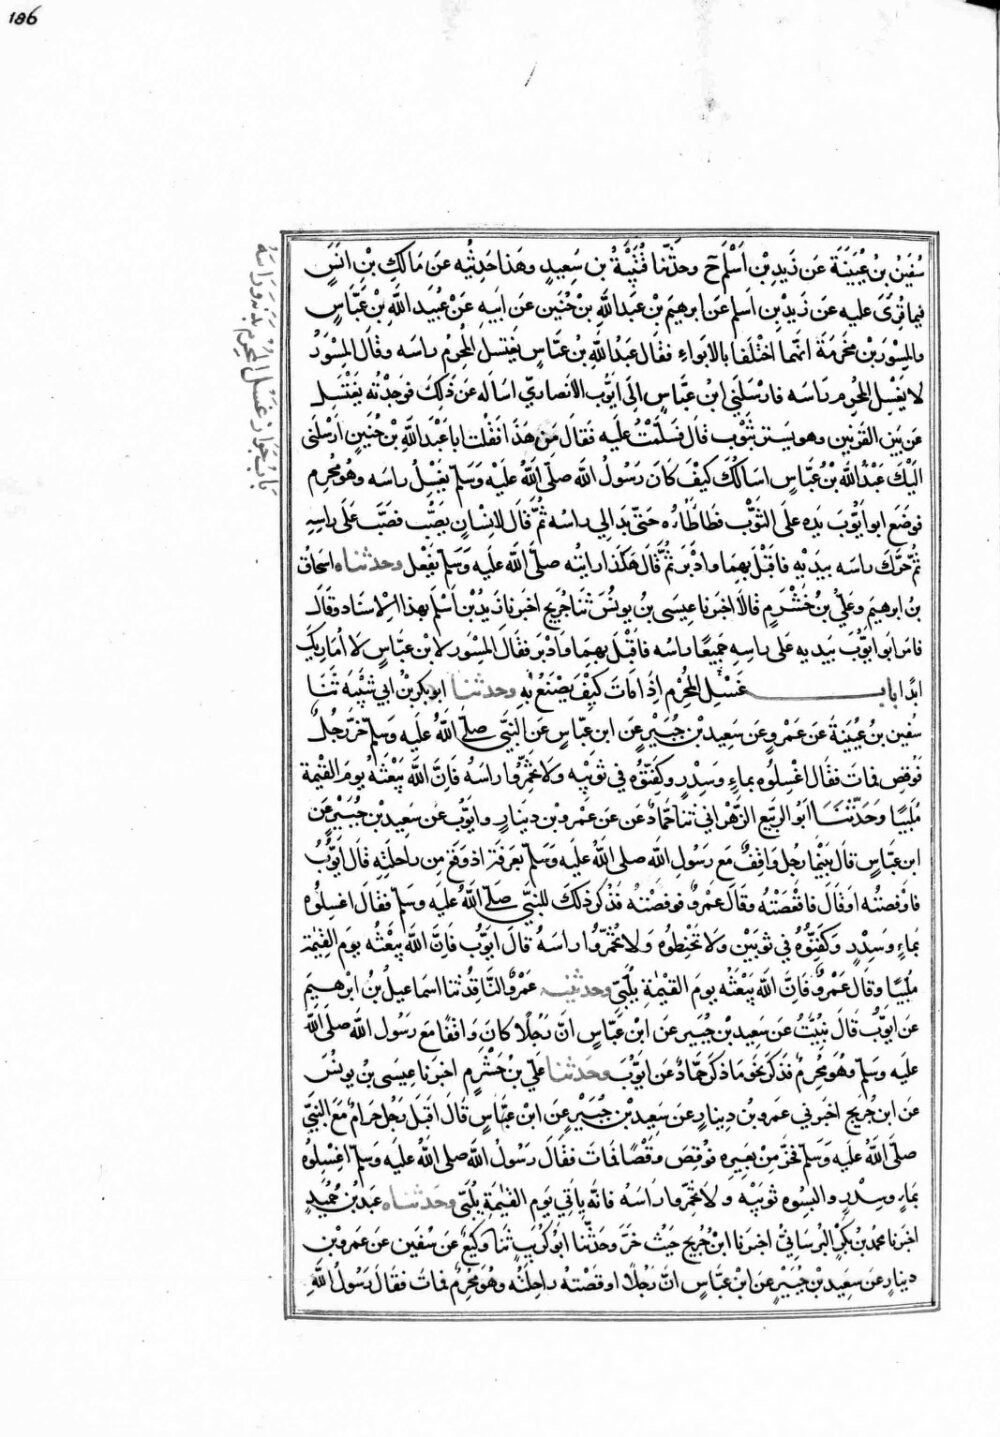 186
باب جواز غسل المحرم بدنه وراسه
سُفين بن عُيَيْنَة عن زيد بن اسلم ح وحدثنا قتيبة بن سعيد وهذا حديثه عن مالك بن انس
فيما قرئ عليه عن زيد بن اسلم عن ابرهيم بن عبد الله بن حنين عن ابيه عن عبيد الله بن عباس
والمسور بن مخرمة انهما اختلفا بالابواء فقال عبد الله بن عباس يغتسل المحرم راسه وقال المسور
لا يغسل المحرم راسه فارسلني ابن عباس الى ايوب الانصاري اساله عن ذلك فوجدته يغتسل
عن بين القرنين وهو يستر بثوب قال فسلمت عليه فقال من هذا فقلت انا عبد الله بن حنين ارسلني
اليك عبد الله بن عباس اسالك كيف كان رسول الله صلى الله عليه وسلم يغسل راسه وهو محرم
فوضع ابو ايوب يده على الثوب فطاطاه حتى بدا لي راسه ثم قال لانسان يصب فصب على راسه
ثم حرك راسه بيديه فاقبل بهما وادبر ثم قال هكذا رايته صلى الله عليه وسلم يفعل وحدثناه اسحاق
بن ابرهيم وعلي بن خشرم قالا اخبرنا عيسى بن يونس ثنا جريج اخبرنا زيد بن اسلم بهذا الاسناد وقال
فامر ابو ايوب بيديه على راسه جميعا راسه فاقبل بهما وادبر فقال المسور لابن عباس لا اماريك
ابدا باب غسل المحرم اذا مات كيف يصنع به وحدثنا ابو بكر بن ابي شيبة ثنا
سفين بن عيينة عن عمرو عن سعيد بن جبير عن ابن عباس عن النبي صلى الله عليه وسلم خر رجل
فوقص فمات فقال اغسلوه بماء وسدر وكفنوه في ثوبيه ولا تخمروا راسه فان الله يبعثه يوم القيمة
ملبيا وحدثنا ابو الربيع الزهراني ثنا حماد عن عن عمرو بن دينار وايوب عن سعيد بن جبير عن
ابن عباس قال بينما رجل واقف مع رسول الله صلى الله عليه وسلم بعرفة اذ وقع من راحلته قال ايوب
فاوقصته او قال فاقعصته وقال عمرو فوقصته فذكر ذلك للنبي صلى الله عليه وسلم فقال اغسلوه
بماء وسدر وكفنوه في ثوبين ولا تحنطوه ولا تخمروا راسه قال ايوب فان الله يبعثه يوم القيمة
ملبيا وقال عمرو فان الله يبعثه يوم القيمة يلبي وحدثنيه عمرو الناقد ثنا اسماعيل بن ابرهيم
عن ايوب قال نبئت عن سعيد بن جبير عن ابن عباس ان رجلا كان واقفا مع رسول الله صلى الله
عليه وسلم وهو محرم فذكر نحو ما ذكر حماد عن ايوب وحدثنا علي بن خشرم اخبرنا عيسى بن يونس
عن ابن جريج اخبرني عمرو بن دينار عن سعيد بن جبير عن ابن عباس قال اقبل رجل حرام مع النبي
صلى الله عليه وسلم فخر من بعيره فوقص وقصا فمات فقال رسول الله صلى الله عليه وسلم اغسلوه
بماء وسدر والبسوه ثوبيه ولا تخمروا راسه فانه ياتي يوم القيمة يلبي وحدثناه عبد بن حميد
اخبرنا محمد بن بكر البرساني اخبرنا ابن جريج حيث خر وحدثنا ابو كريب ثنا وكيع عن سفين عن عمرو بن
دينار عن سعيد بن جبير عن ابن عباس ان رجلا اوقصته راحلته وهو محرم فمات فقال رسول الله